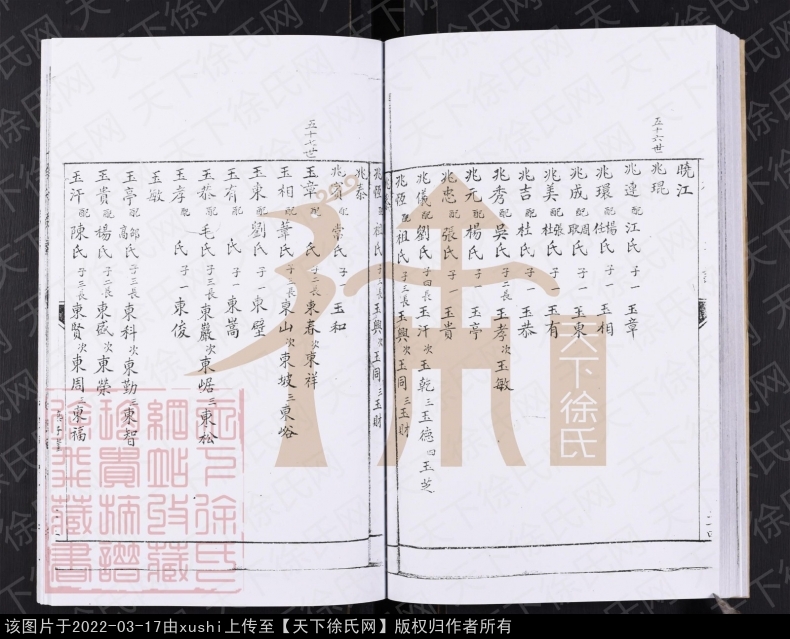 五十六世
曉江
兆琨
兆連 配江氏 子一 玉章
兆環 配楊任氏 子一 玉相
兆成 配周耿氏 子一 玉東
兆美 配張杜氏 子一 玉有
兆吉 配杜氏 子一 玉恭
兆秀 配吳氏 子二長玉孝次玉敏
兆元 配楊氏 子一 玉亭
兆忠 配張氏 子一 玉貴
兆儀 配劉氏 子四長玉汗次玉乾三玉德四玉芝
兆徑 配祖氏 子三長玉興次玉同三玉財
兆徑 配祖氏 子三長玉興次玉同三玉財
兆泰
兆賓 配常氏 子一 玉和
五十七世
玉章 配 氏 子二長東春次東祥
玉相 配葦氏 子三長東山次東坡三東峪
玉東 配劉氏 子一 東壁
玉有 配 氏 子一 東嵩
玉恭 配毛氏 子三長東嚴次東崌三東松
玉孝 配 氏 子一 東俊
玉敏
玉亭 配郎高氏 子三長東科次東勤三東智
玉貴 配楊氏 子二長東盛次東榮
玉汗 配陳氏 子三長東賢次東周三東福
天下徐氏
天下徐氏网
该图片于2022-03-17由xushi上传至【天下徐氏网】版权归作者所有